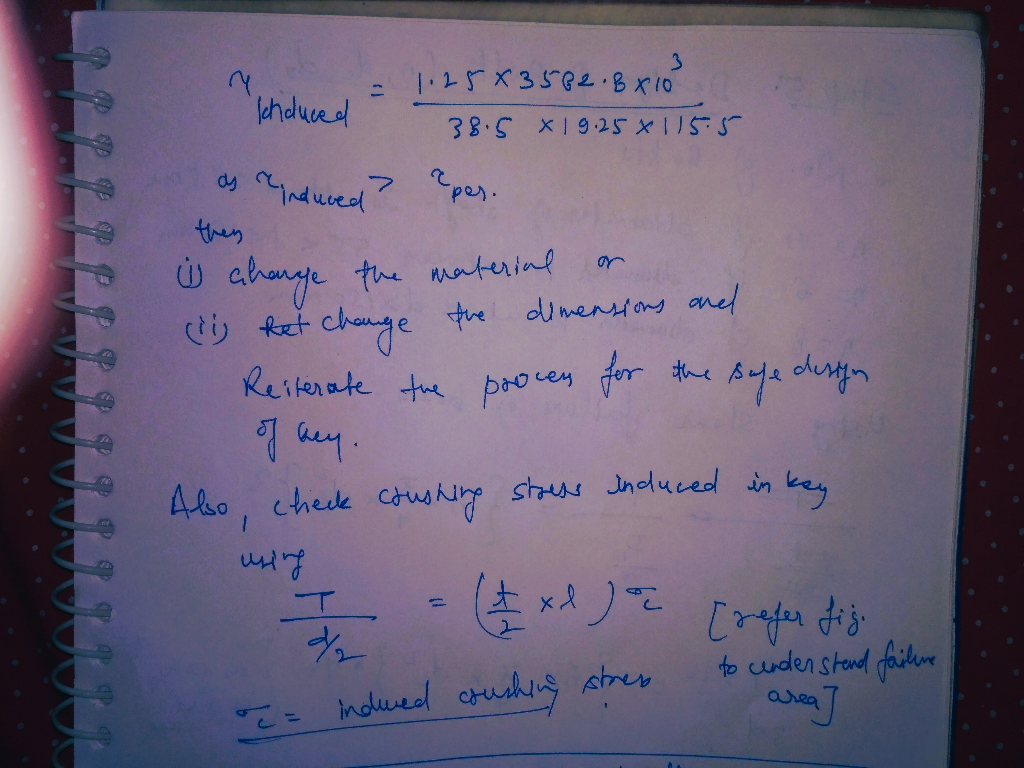 τ induced = 1.25 × 3582.8 × 10³ / 38.5 × 19.25 × 115.5
as τ induced > τ per.
then
(i) change the material or
(ii) change the dimensions and
Reiterate the process for the safe design
of key.
Also, check crushing stress induced in key
using
T / d/2 = (t/2 × l) σc [refer fig.
to understand failure
area]
σc = induced crushing stress